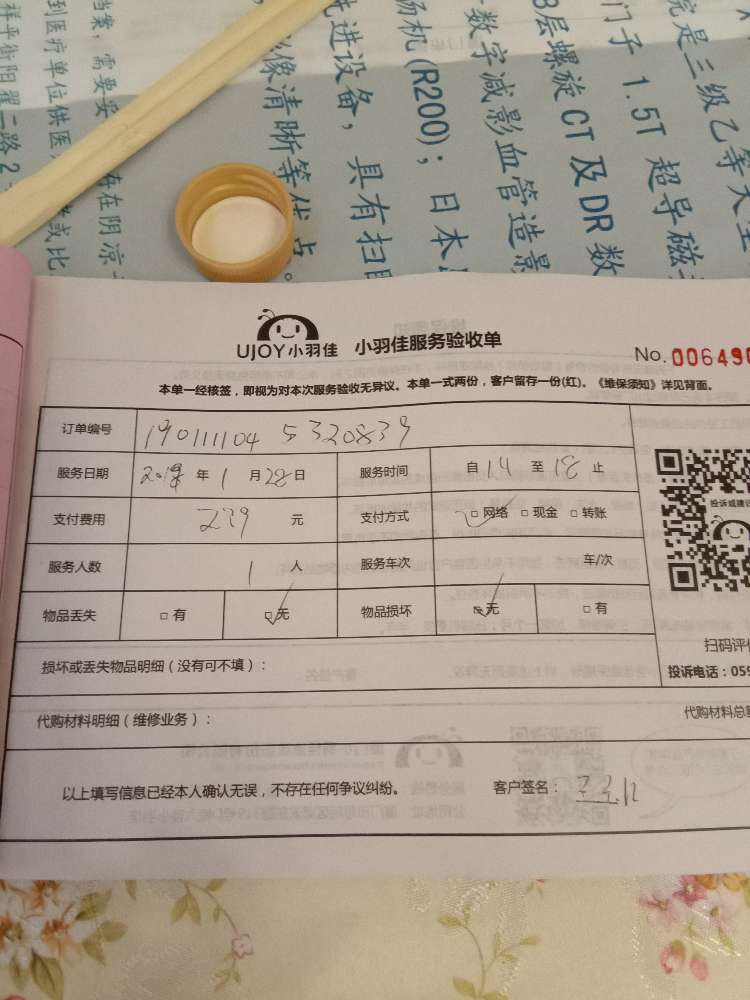 UJOY小羽佳 小羽佳服务验收单
No. 006490
本单一经核签，即视为对本次服务验收无异议。本单一式两份，客户留存一份(红)。《维保须知》详见背面。
订单编号 190111104 5320839
服务日期 2019 年 1 月 28 日 服务时间 自 14 至 18 止
支付费用 239 元 支付方式 □ 网络 □ 现金 □ 转账
服务人数 1 人 服务车次 车/次
物品丢失 □ 有 □ 无 物品损坏 □ 无 □ 有
投诉或建议
扫码评价
投诉电话：059
损坏或丢失物品明细（没有可不填）：
代购材料明细（维修业务）：
代购材料总额
以上填写信息已经本人确认无误，不存在任何争议纠纷。 客户签名：
院是三级乙等大型
门子 1.5T 超导磁
层螺旋 CT 及 DR 数
数字减影血管造影
机(R200)；日本
先进设备，具有扫
影像清晰等优点。